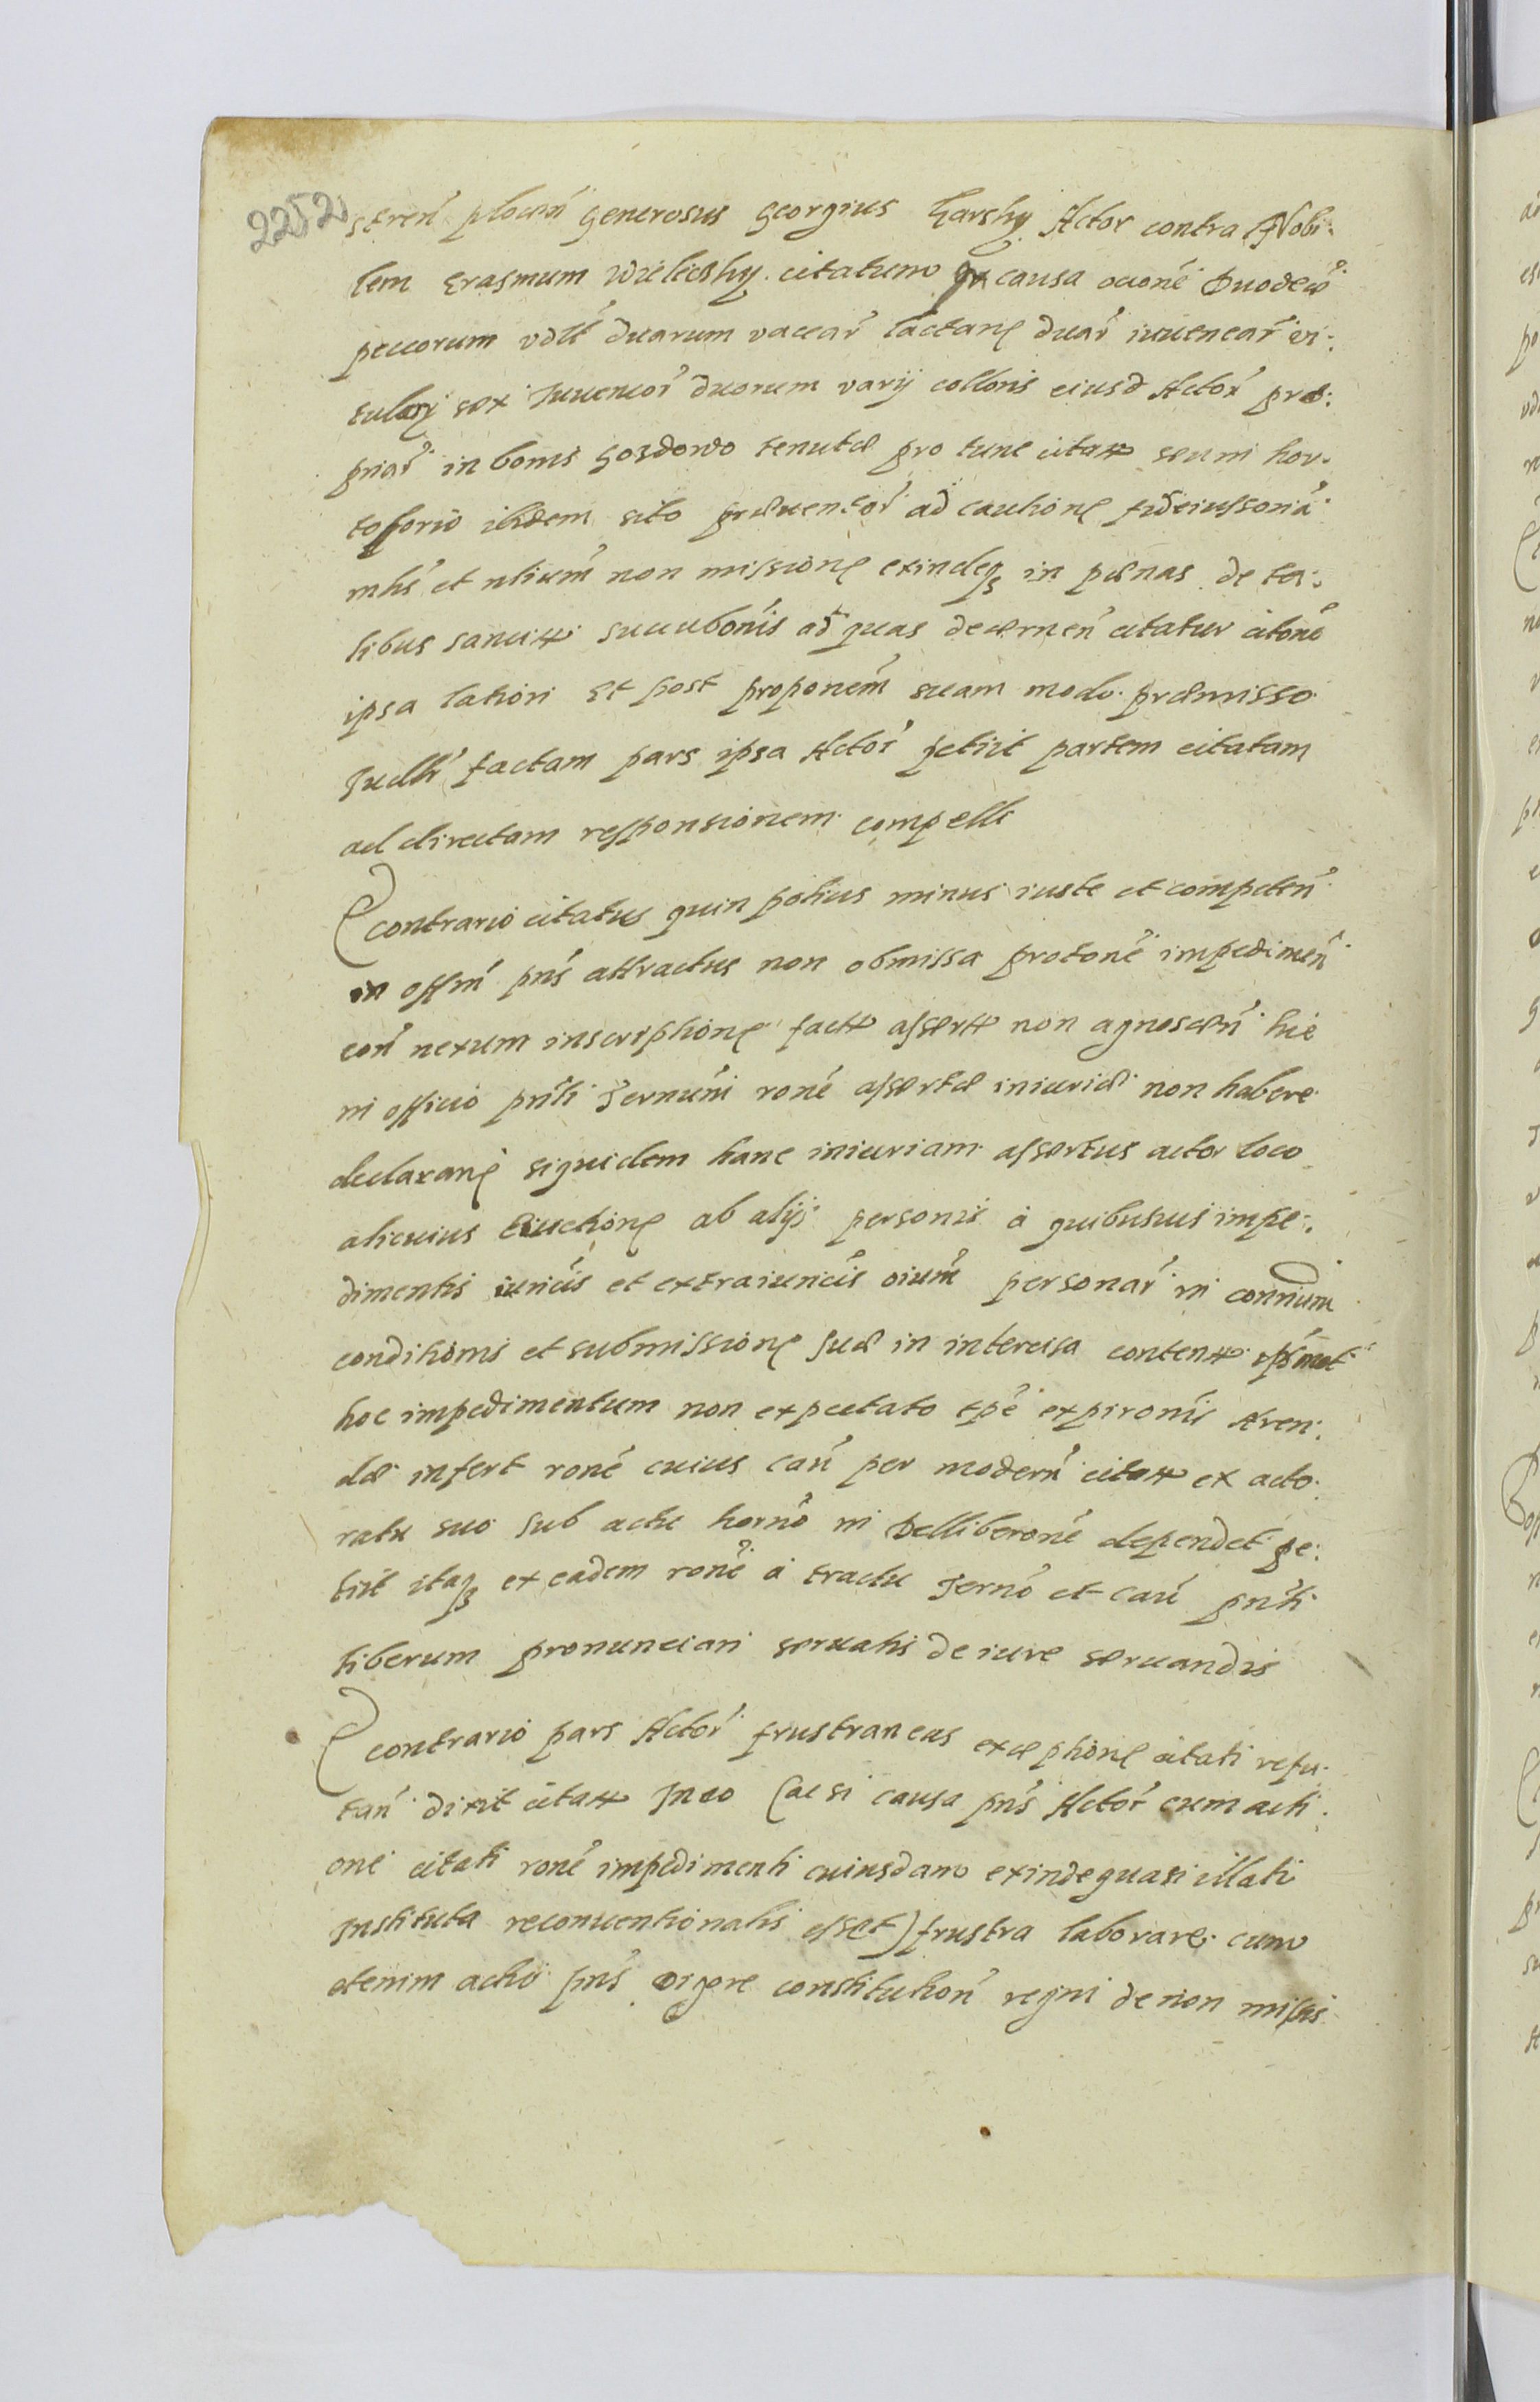 2252
stren̄ plocen̄ Generosus Georgius Garsky Actor contra Nobi:
lem Erasmum Wielicsky citatum In causa occone Duodecē
peccorum vdlt duarum vaccar̄ lactan̄ duar̄ iuuencar̄ vi:
tulor̄ sex Juuencor̄ duorum varij colloris eiusd Actor̄ pro:
priar̄ in bonis Gozdowo tenutæ pro tunc citati seu in hor:
to horio ibidem sito præuentor̄ ad cautione fideiussoria
mlis et ultium non missione exindeq in pænas de ta:
libus sancitis succubonis ad quas decernen citatur citone
ipsa latiori Et post proponem suam modo præmisso
Judllr factam pars ipsa Actor̄ petiit partem citatam
ad directam responsionem compelli
E contrario citatus quin potius minus iuste et competen̄
in offm pns attractus non obmissa protone impedimen̄
con̄ nexum inscriptione facti asserti non agnoscen̄ hic
in officio pnti Termini rone assertæ iniuriæ non habere
declarane siquidem hanc iniuriam assertus actor loco
alicuius Euictione ab alijs personis à quibusuis impe:
dimentis iuricis et extraiuricis oium personar̄ in commun̄
conditionis et submissione suæ in intercisa contentæ ipsemet
hoc impedimentum non expectato tpe expironis Aren:
dæ infert rone cuius can̄ per modern̄ citati ex acto:
ratu suo sub actu horno in Delliberone dependet pe:
tiit itaq ex eadem rone à tractu Terno et can̄ pnti
liberum pronunciari seruatis de iure seruandis
E contrario pars Actor̄ frustraneas exceptione citati refu:
tan̄ dixit citati In eo (ac si causa pns Actor̄ cum acti:
one citati rone impedimenti cuiusdam exinde quasi illati
Instituta reconuentionalis esset) frustra laborare cum
etenim actio pns vigore constitution̄ regni de non missis